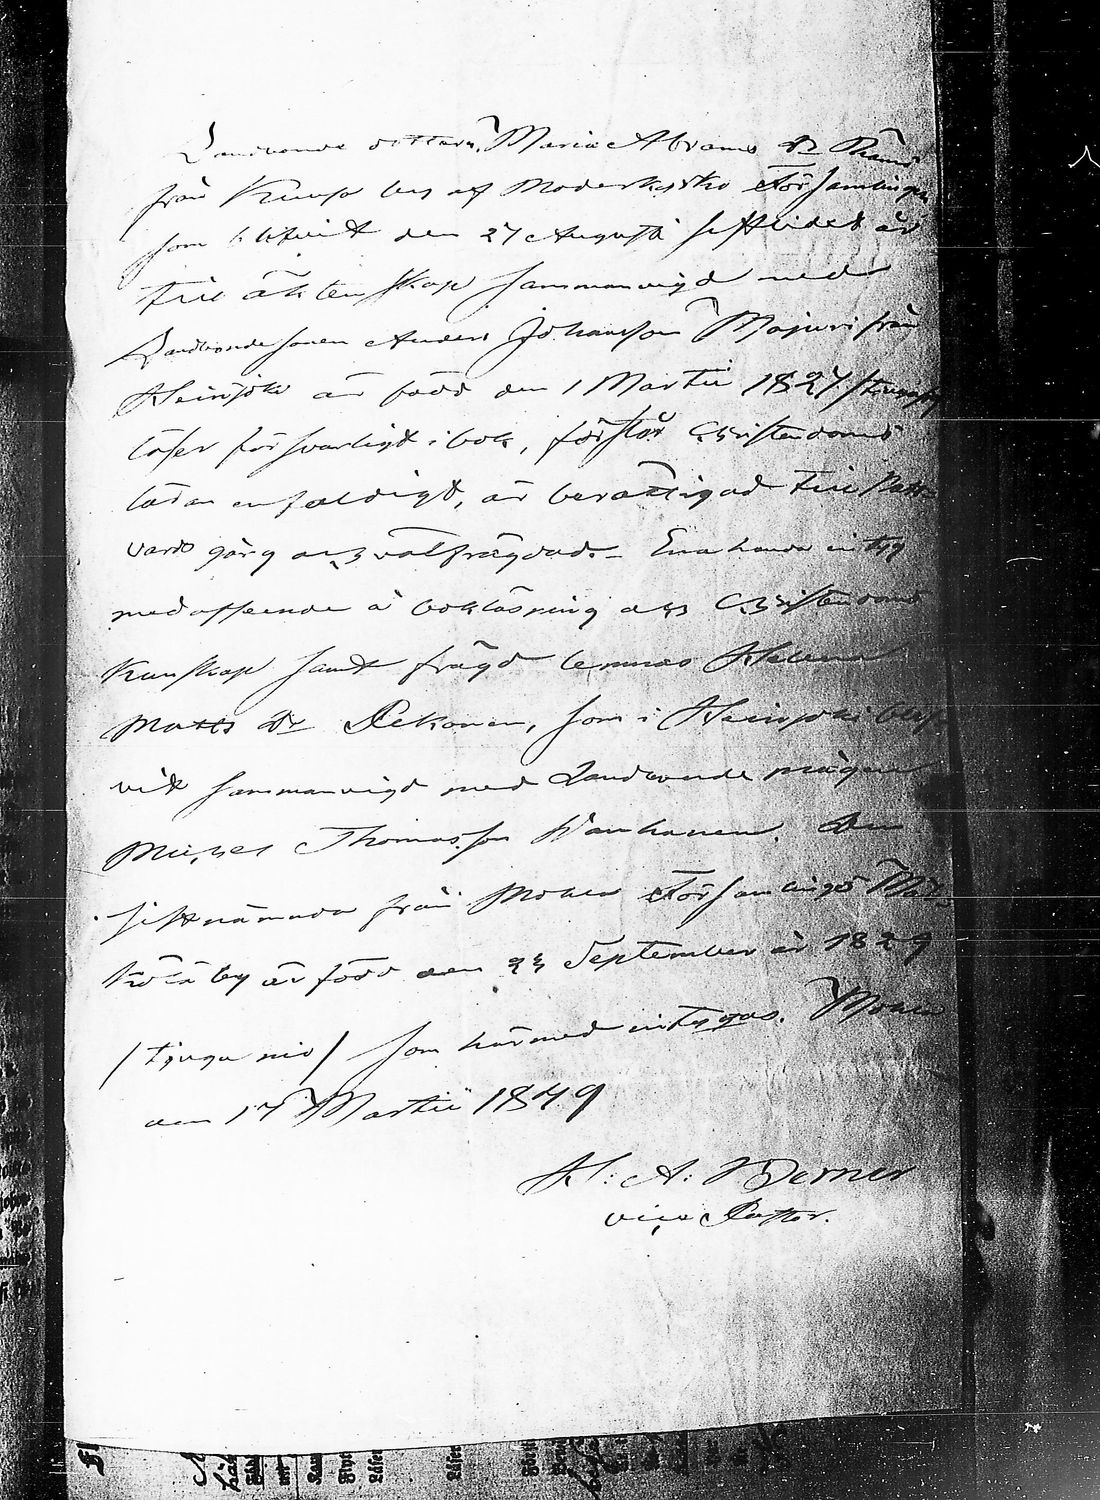 Landbonde dottern, Maria Abrams Dr Thäme
från Kuusa by af Moderkyrko Församlingen
som blifvit den 27 Augusti sistledet år
till äktenskap sammanvigd med
Landbondesonen Anders Johansson Majuri från
Heinjoki är född den 1 Martii 1827 /tjugusju/
läser försvarligt i bok, förstår Christendoms
läran enfaldigt, är berättigad till Natt-
vards gång och välfrägdad. Enahanda intyg
med afseende å bokläsning och Christendoms
Kunskap samt frägd lemnas Helena
Matts Dr Pekonen, som i Heinjoki blif-
vit sammanvigd med Landbonde mågen
Michel Thomasson Wanhanen. Den
sistnämnda från Mohla Församlings
by är född den September år 1829
/tjugu nio/ som härmed intygas. Mohla
den 17 Martii 1849
H: A: Berner
vice Pastor.